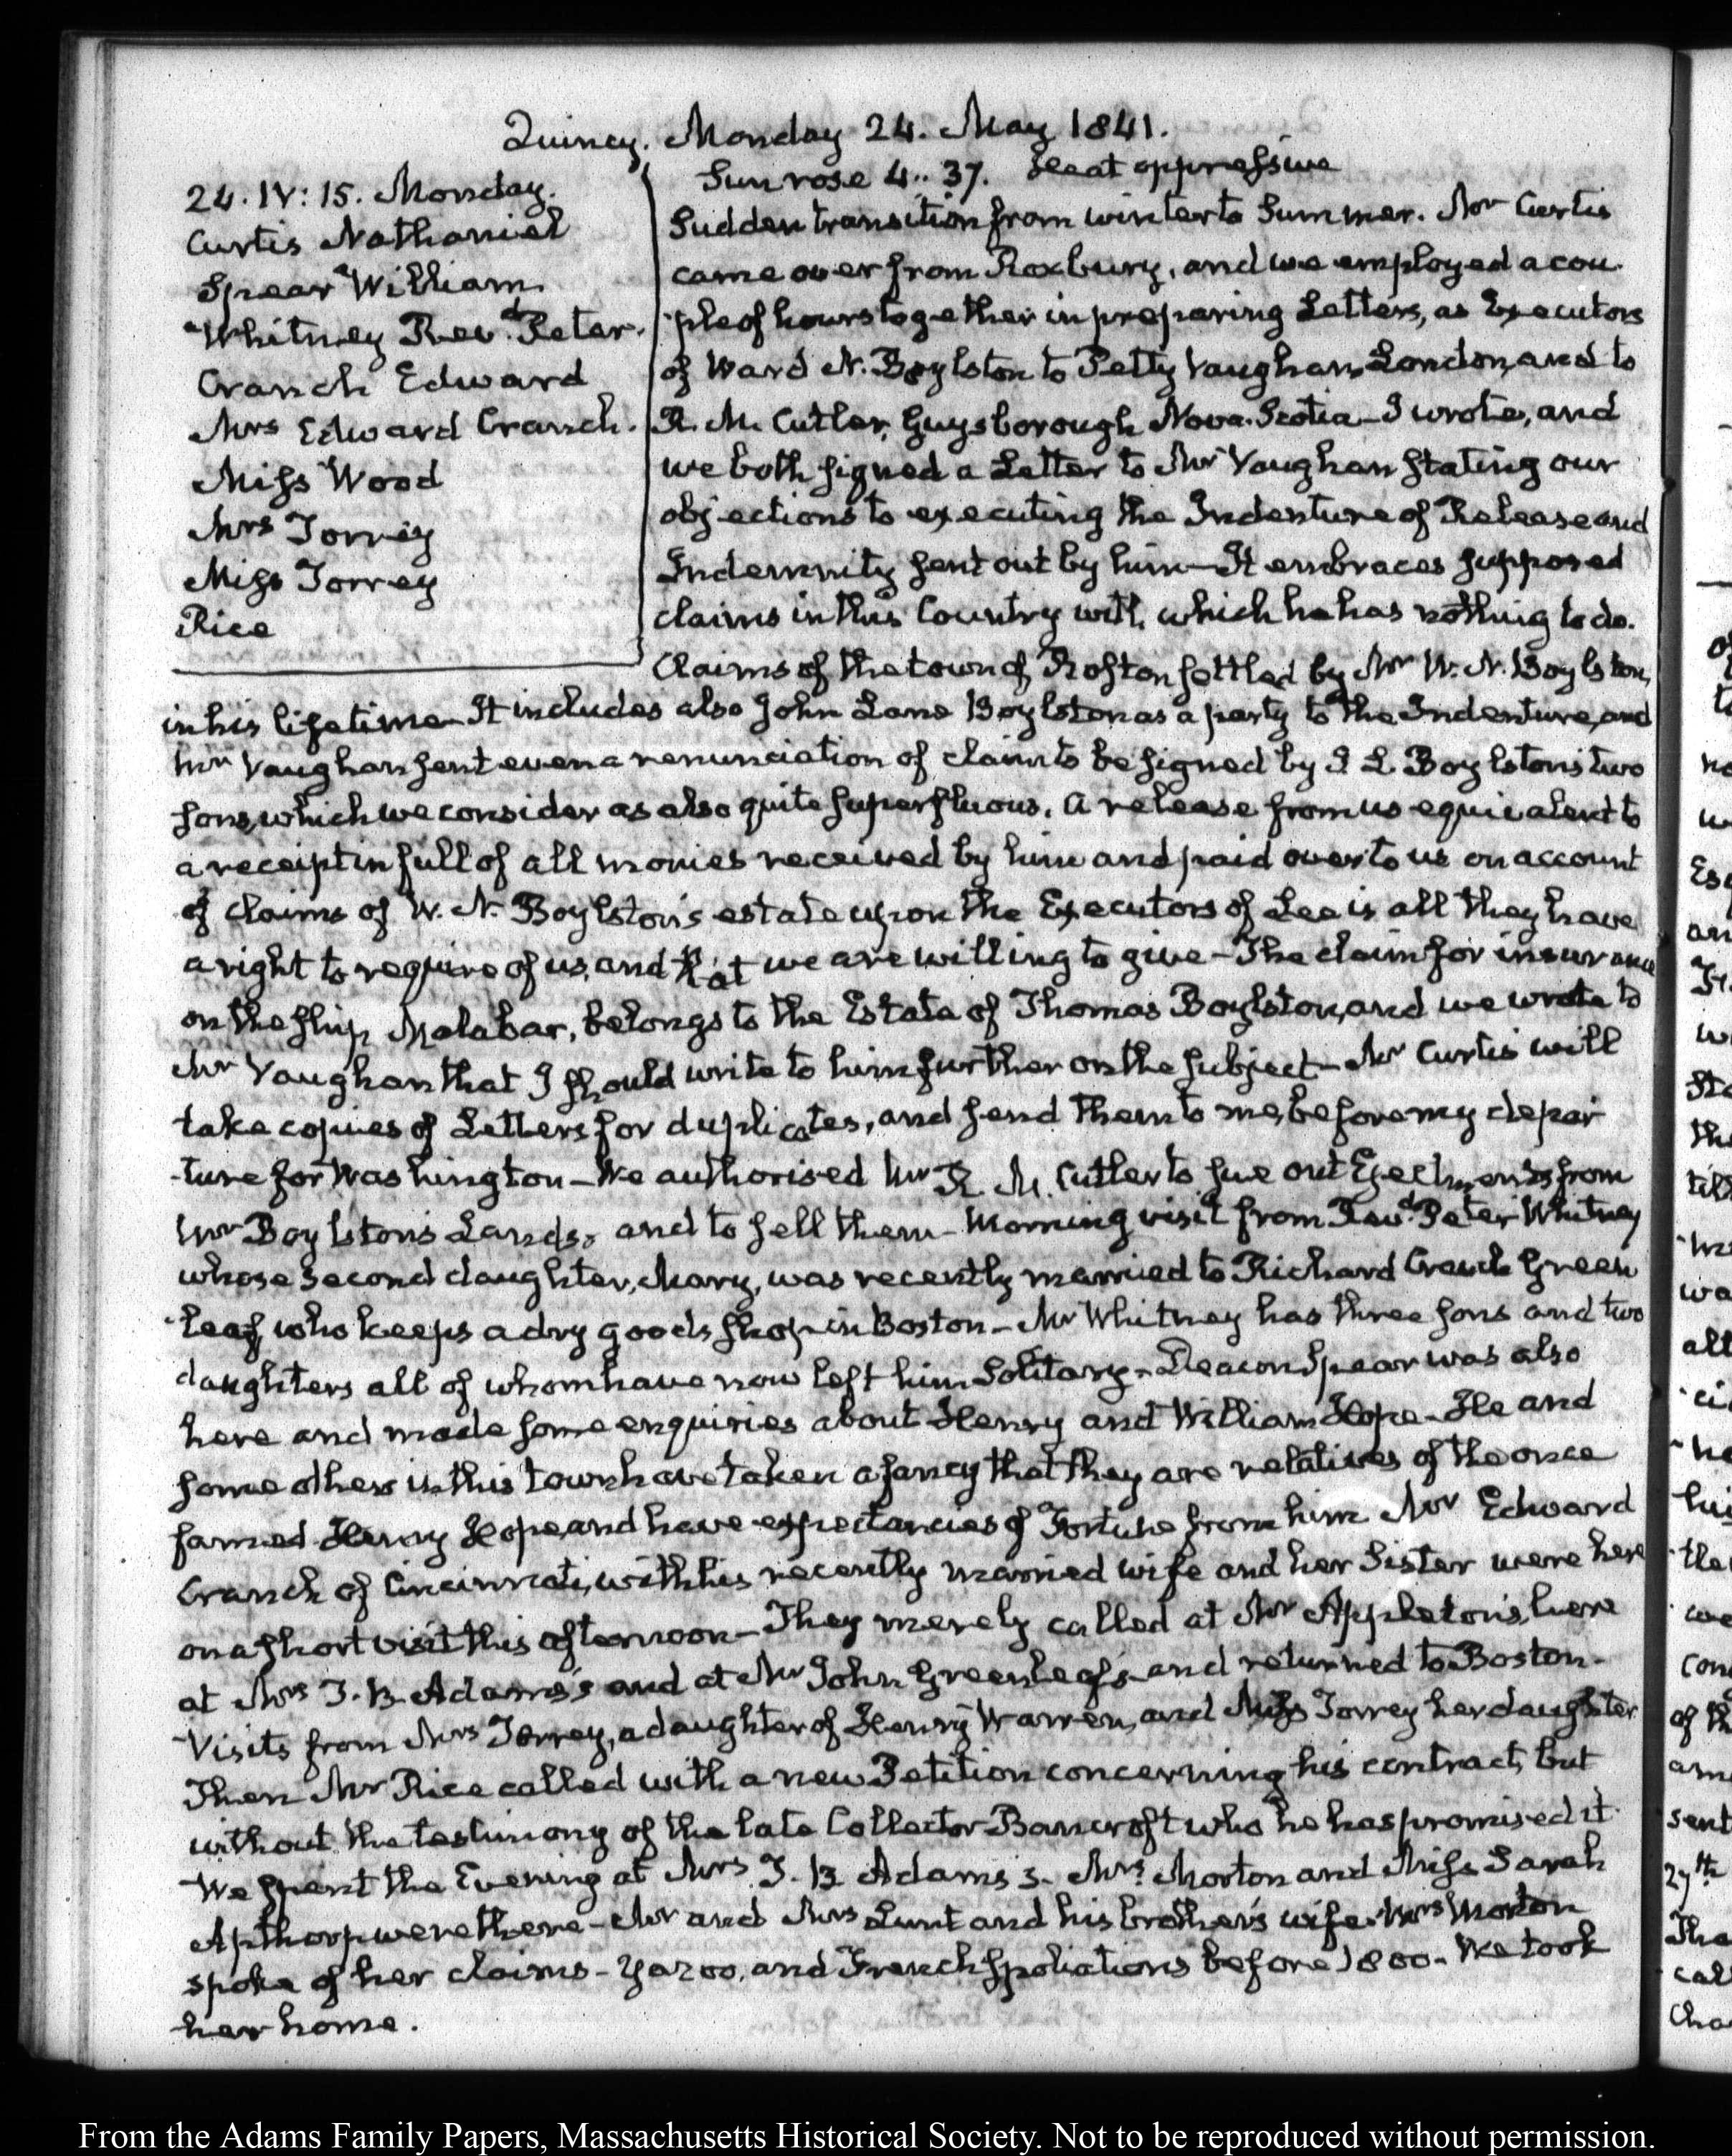 Quincy. Monday 24. May 1841.
24. IV: 15. Monday.
Curtis Nathaniel
Spear William
Whitney Revd. Peter.
Cranch Edward
Mrs Edward Cranch.
Miss Wood
Mrs Torrey
Miss Torrey
Rice
Sun rose 4..37. Heat oppressive
Sudden transition from winter to Summer. Mr Curtis
came over from Roxbury, and we employed a cou-
-ple of hours together in preparing Letters, as Executors
of Ward N. Boylston to Petty Vaughan, London, and to
R. M. Cutler, Guysborough Nova-Scotia—I wrote, and
we both signed a Letter to Mr Vaughan stating our
objections to executing the Indenture of Release and
Indemnity sent out by him—It embraces supposed
claims in this Country with which he has nothing to do.
Claims of the town of Boston settled by Mr W. N. Boylston,
in his lifetime—It includes also John Lane Boylston as a party to the Indenture, and
Mr Vaughan sent even a renunciation of claim to be signed by J L Boylston's two
sons, which we consider as also quite superfluous. A release from us equivalent to
a receipt in full of all monies received by him and paid over to us on account
of claims of W. N. Boylston's estate upon the Executors of Lee is all they have
a right to require of us, and that we are willing to give—The claim for insurance
on the ship Malabar, belongs to the Estate of Thomas Boylston, and we wrote to
Mr Vaughan that I should write to him further on the subject—Mr Curtis will
take copies of Letters for duplicates, and send them to me, before my depar
-ture for Washington—We authorised Mr R. M. Cutler to sue out Ejectments from
Mr Boylston's Lands, and to sell them—Morning visit from Revd. Peter Whitney
whose second daughter, Mary, was recently married to Richard Cranch Green
-leaf, who keeps a dry goods shop in Boston—Mr Whitney has three sons and two
daughters all of whom have now left him Solitary—Deacon Spear was also
here and made some enquiries about Henry and William Hope—He and
some others in this town have taken a fancy that they are relatives of the once
famed Henry Hope, and have expectancies of Fortune from him Mr Edward
Cranch of Cincinnati, with his recently married wife and her Sister were here
on a short visit this afternoon—They merely called at Mr Appleton's, here
at Mrs T. B. Adams's and at Mr John Greenleaf's and returned to Boston—
Visits from Mrs Torrey, a daughter of Henry Warren, and Miss Torrey her daughter
Then Mr Rice called with a new Petition concerning his contract, but
without the testimony of the late Collector Bancroft who he has promised it
We spent the Evening at Mrs T. B Adams's. Mrs Morton and Miss Sarah
Apthorp were there—Mr and Mrs Lunt and his brother's wife. Mrs Morton
spoke of her claims—Yazoo, and French spoliations before 1800—We took
her home.
From the Adams Family Papers, Massachusetts Historical Society. Not to be reproduced without permission.